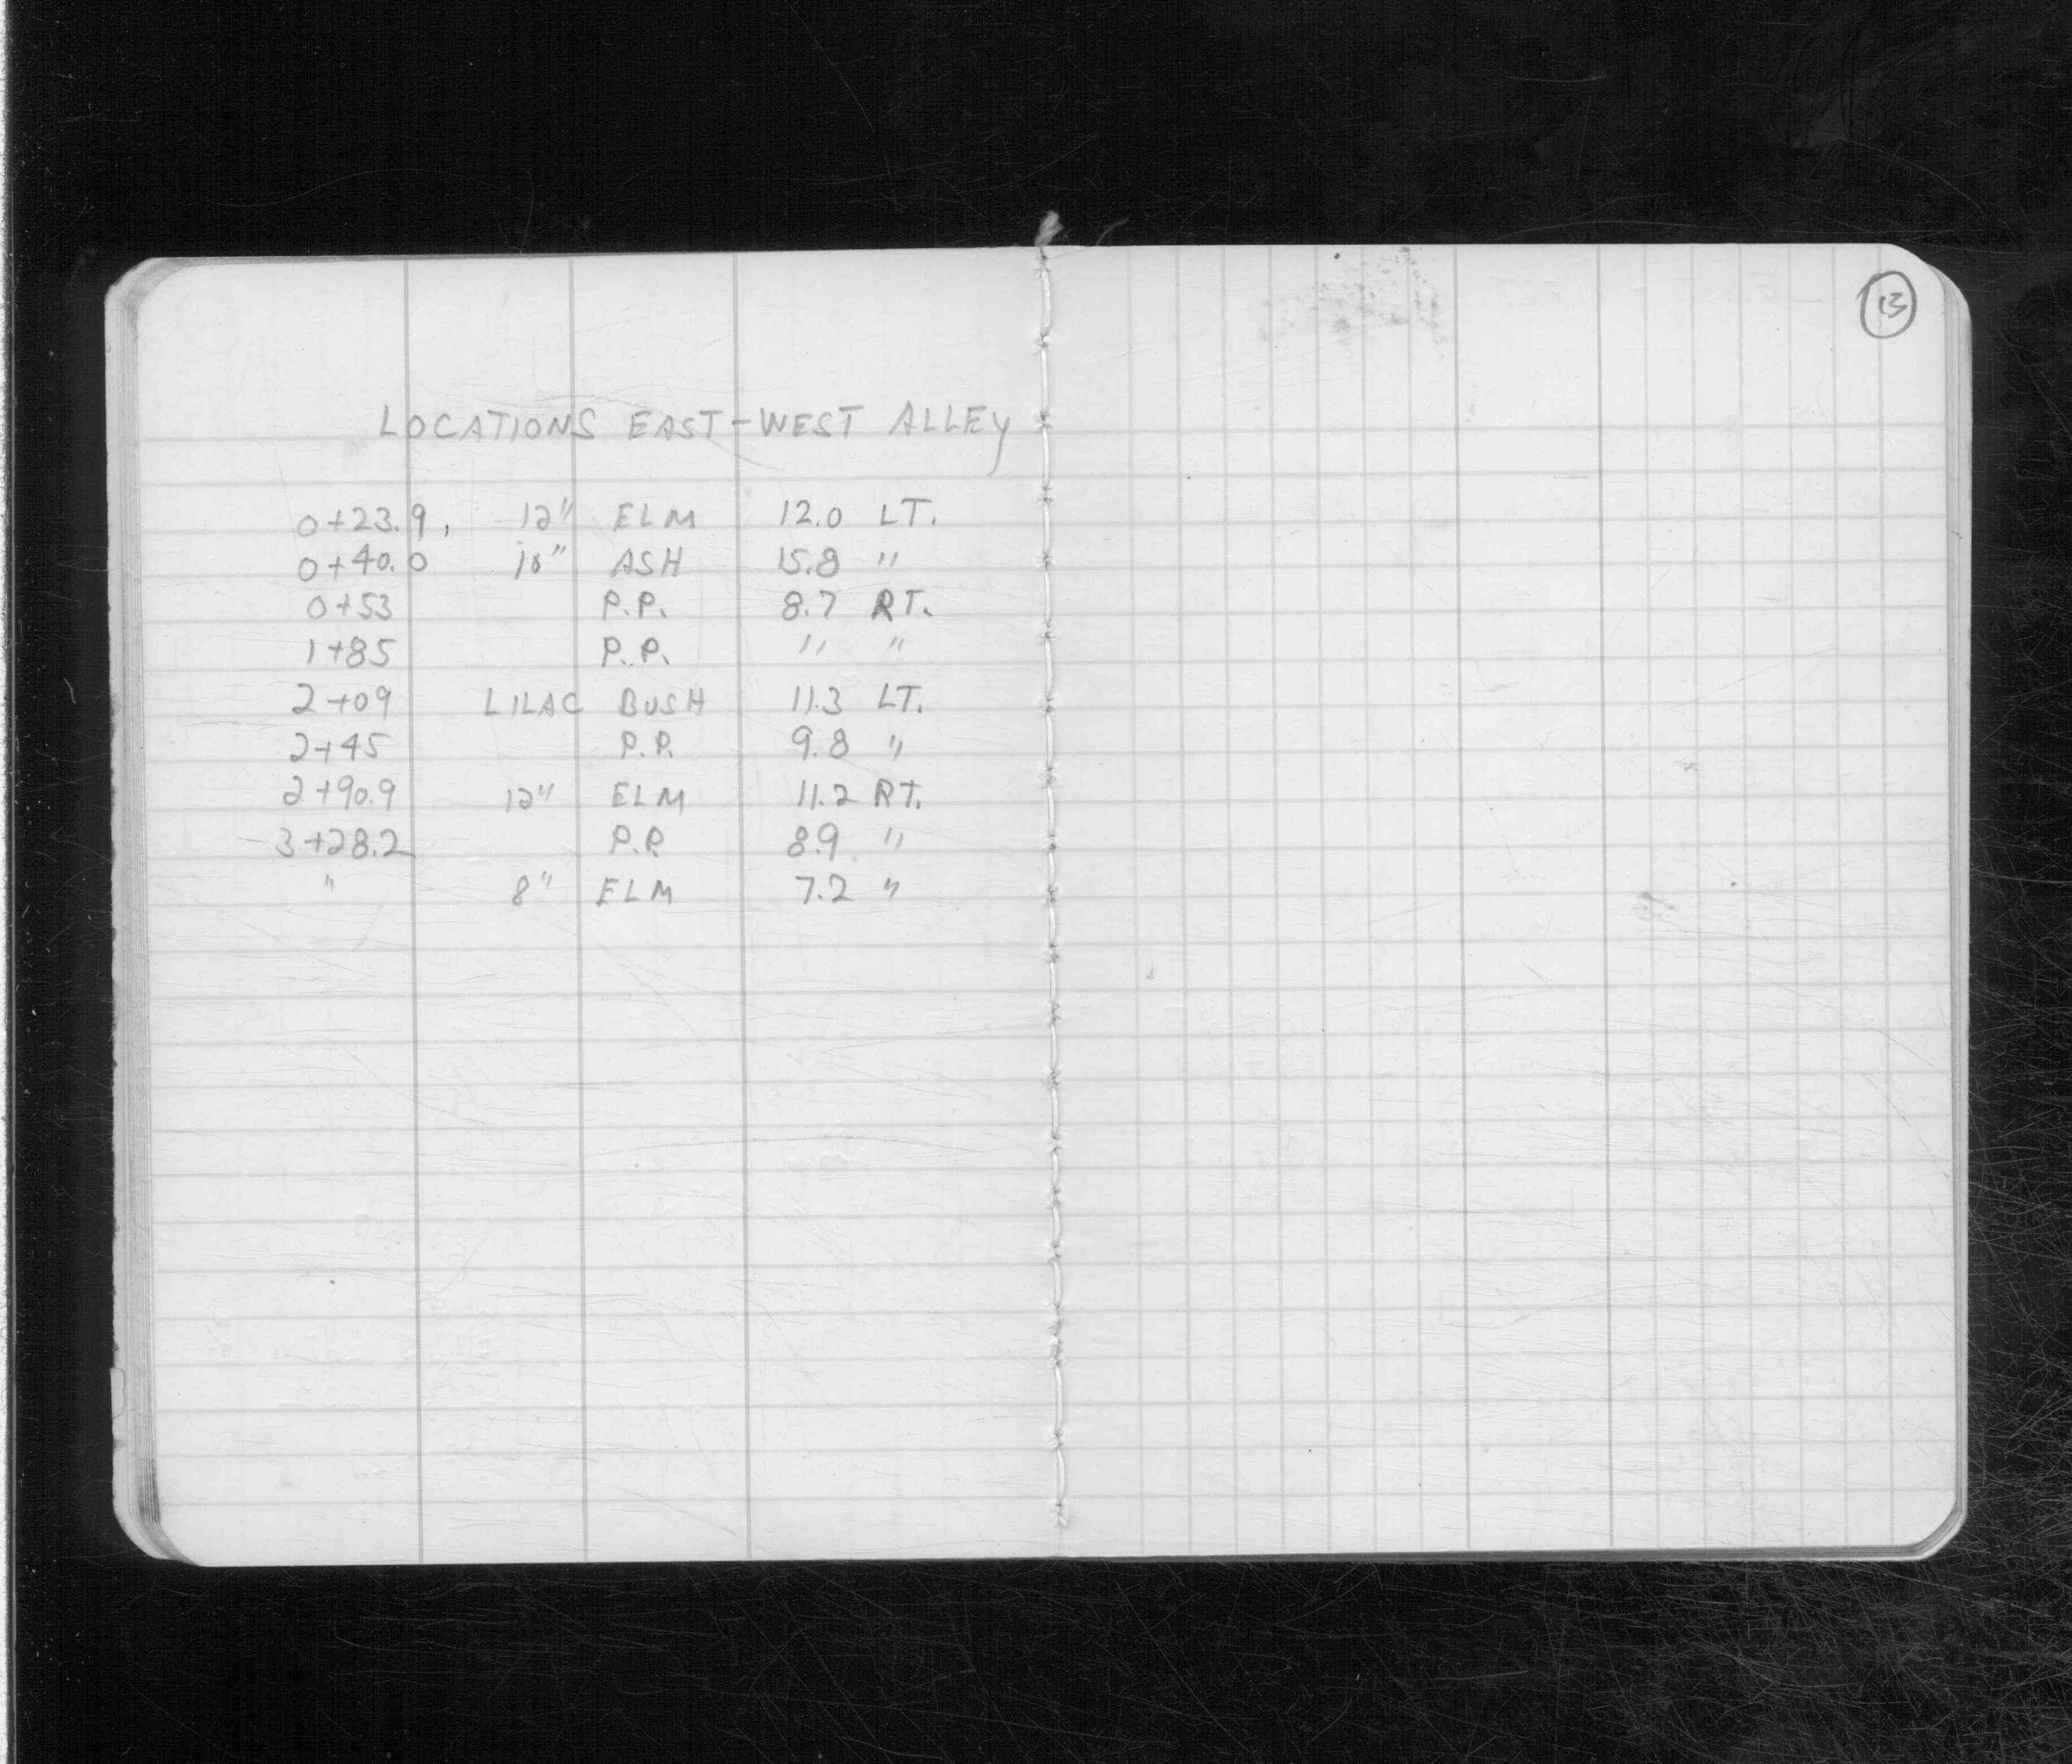 LOCATIONS EAST-WEST ALLEY
0+23.9, 12" ELM 12.0 LT.
0+40.0 ASH 15.8 "
0+53 P.P. 8.7 RT.
1+85 P.P. " "
2+09 LILAC BUSH 11.3 LT.
2+45 P.P. 9.8 "
2+90.9 12" ELM 11.2 RT.
3+28.2 P.P 8.9 "
" 8" ELM 7.2 "
13